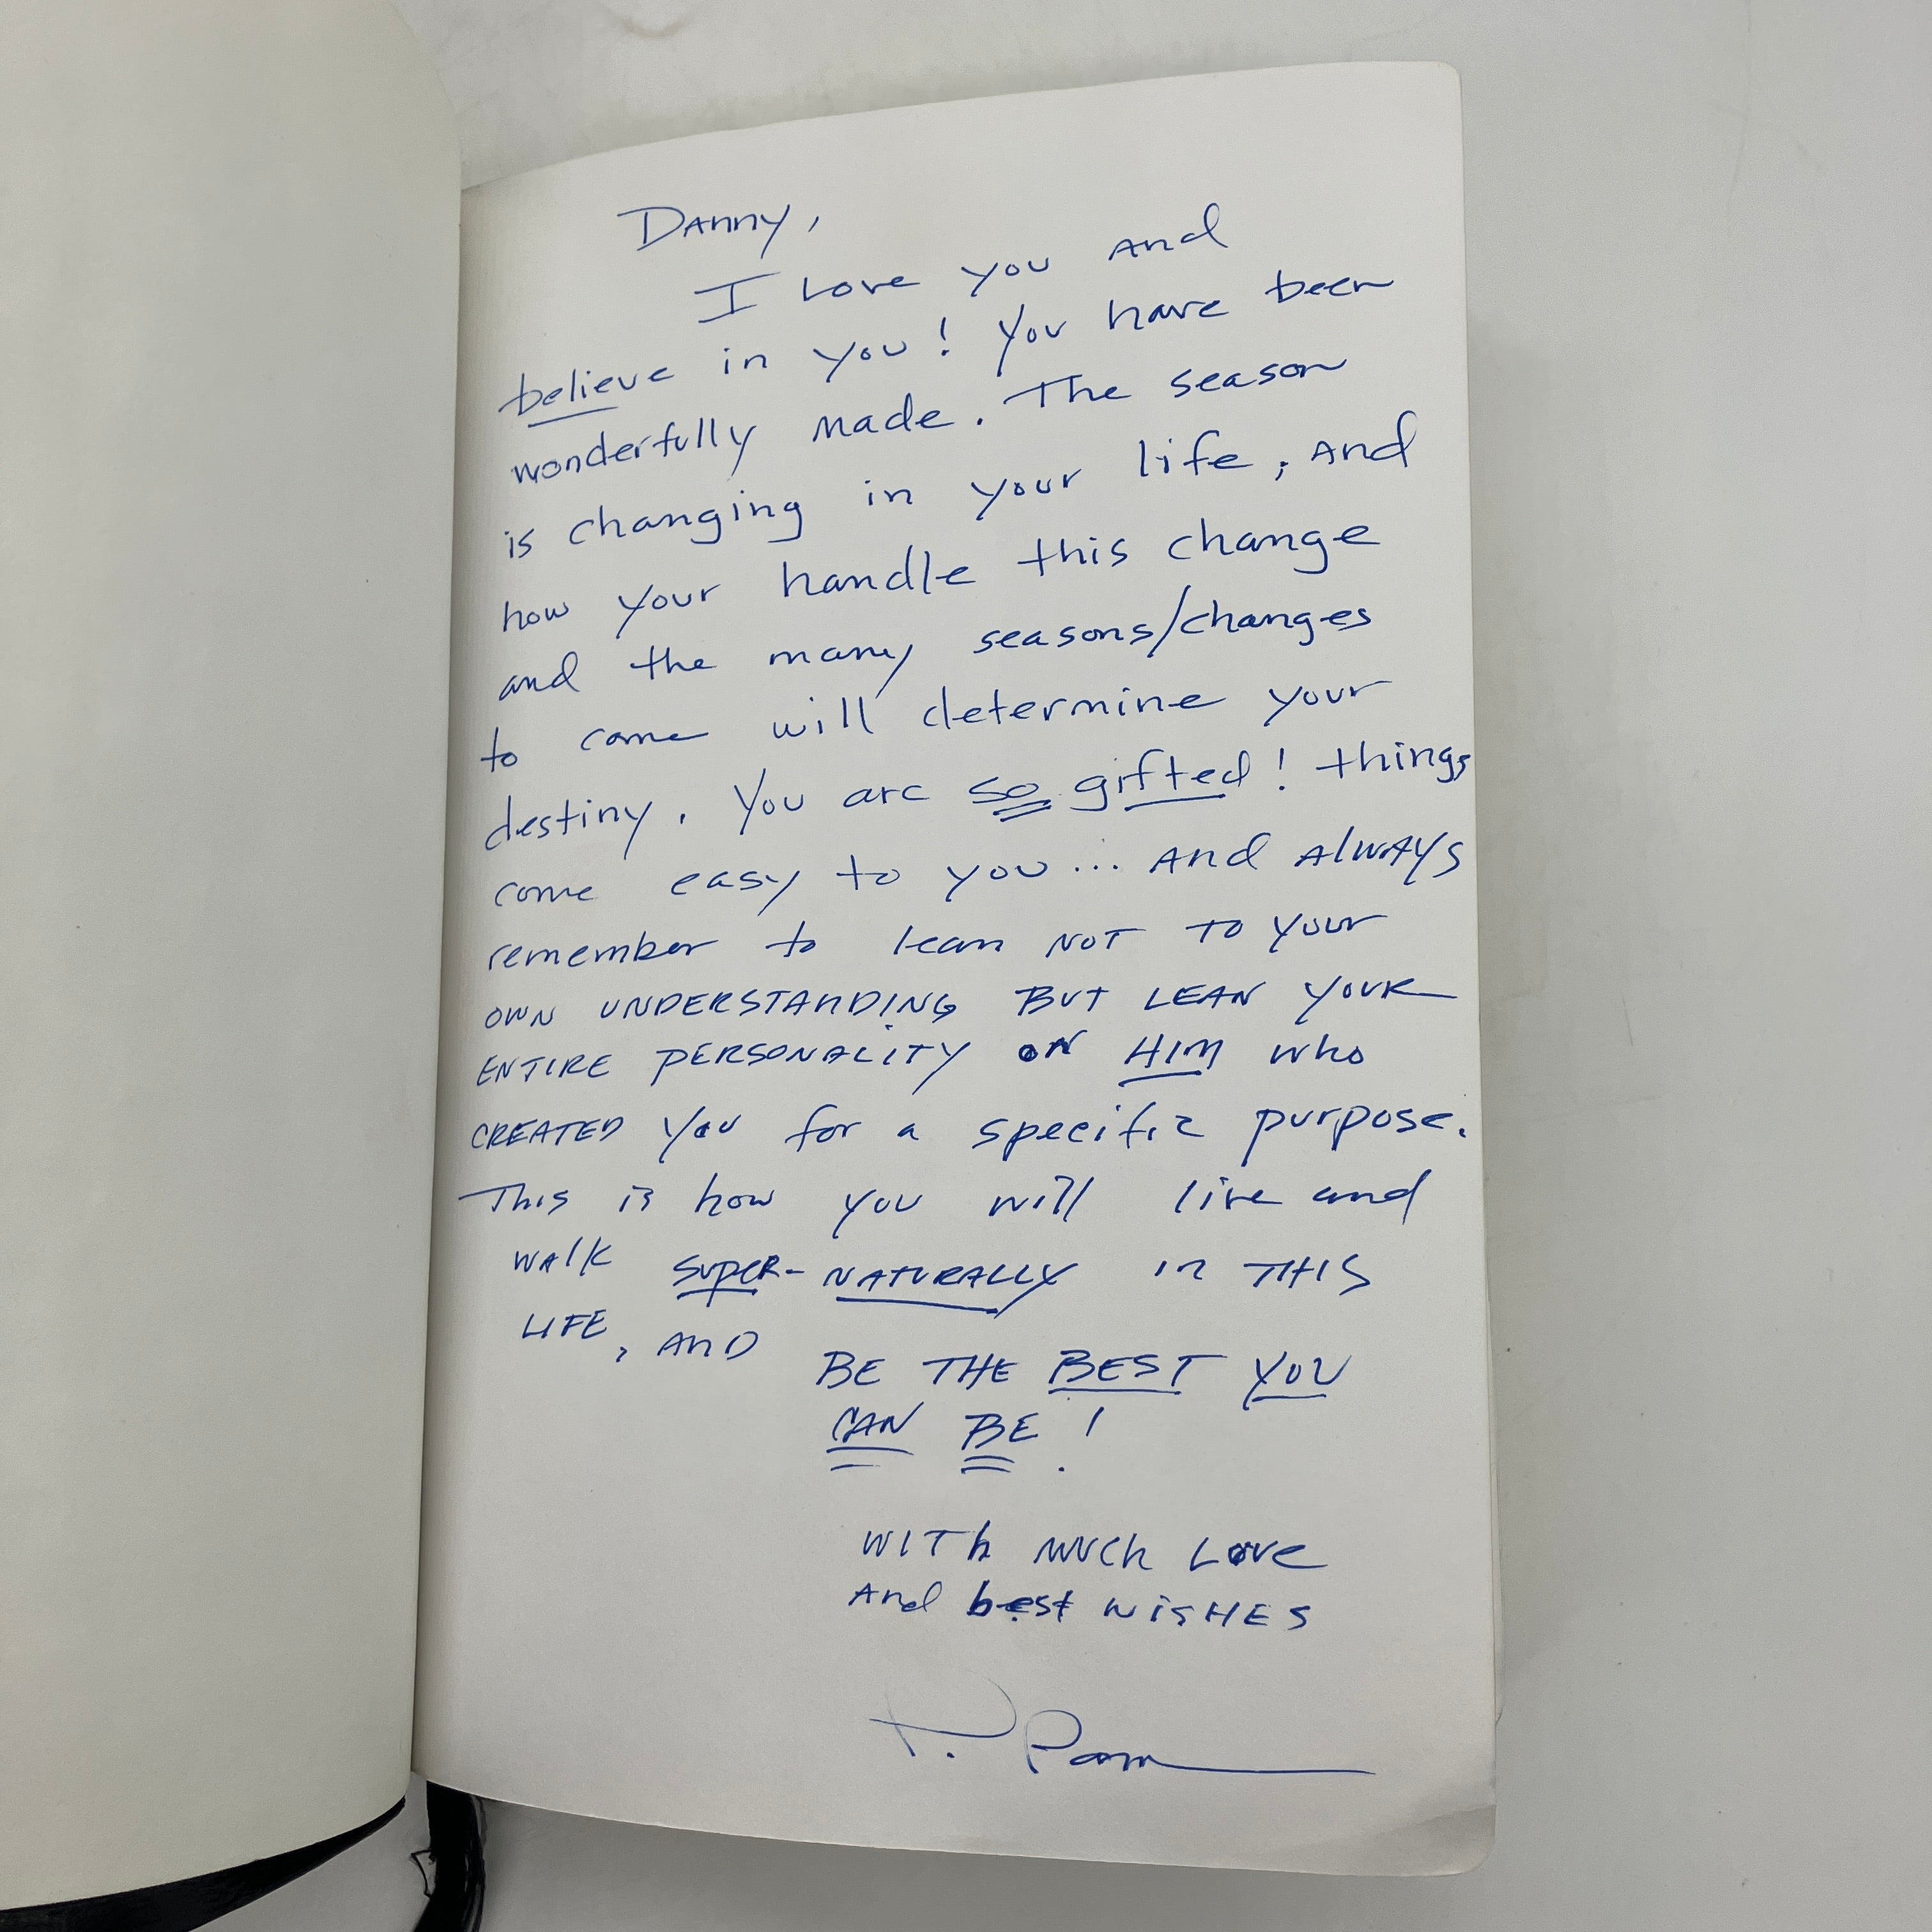 Danny,
I love you and
believe in you! You have been
wonderfully made. The season
is changing in your life, and
how your handle this change
and the many seasons/changes
to come will determine your
destiny. You are so gifted! things
come easy to you... And always
remember to lean NOT TO your
OWN UNDERSTANDING BUT LEAN YOUR
ENTIRE PERSONALITY ON HIM who
CREATED you for a specific purpose.
This is how you will live and
walk SUPER-NATURALLY in THIS
LIFE, AND
BE THE BEST YOU
CAN BE!
WITh MUCh Love
And best WiSHES
P. Pam